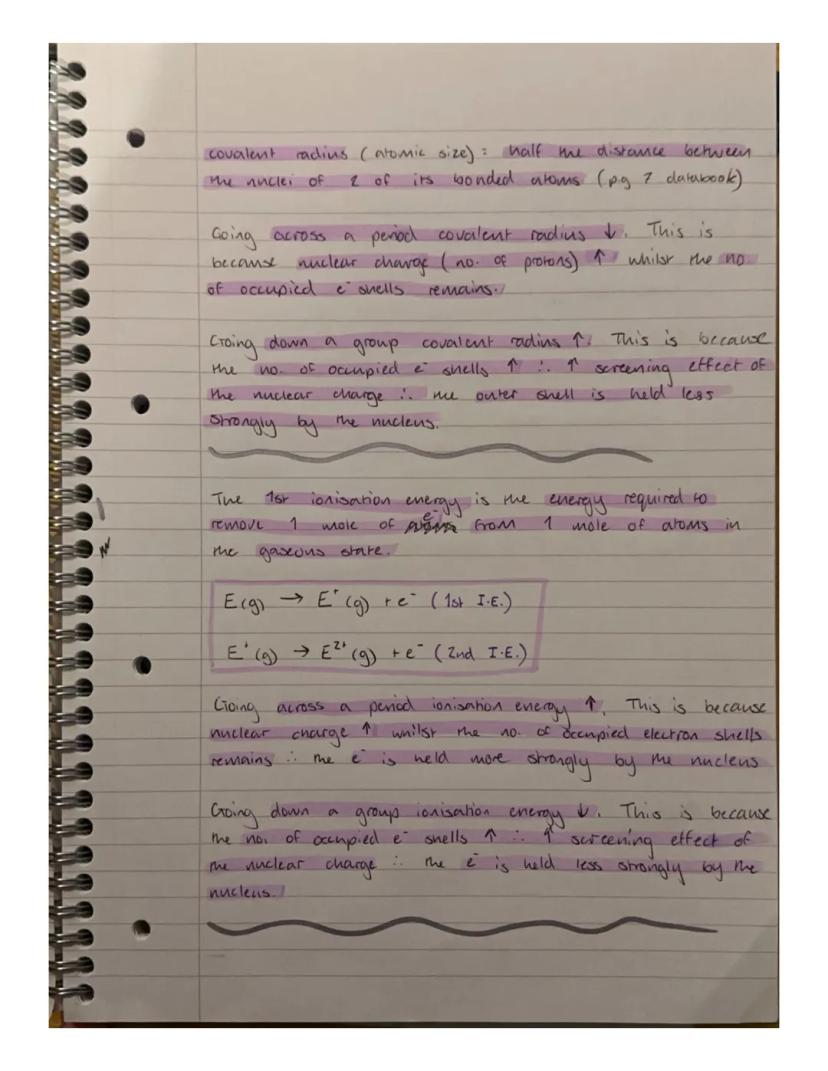 covalent radius (atomic size): half the distance between
the nuclei of 2 of its bonded atoms (pg 7 databook)
Going across a period covalent radius ↓. This is
because nuclear charge (no. of protons) ↑ whilst the no.
of occupied e⁻ shells remains.
Going down a group covalent radius ↑. This is because
the no. of occupied e⁻ shells ↑ ∴ ↑ screening effect of
the nuclear charge ∴ the outer shell is held less
strongly by the nucleus.
The 1st ionisation energy is the energy required to
remove 1 mole of e⁻ from 1 mole of atoms in
the gaseous state.
E(g) → E⁺(g) + e⁻ (1st I.E.)
E⁺(g) → E²⁺(g) + e⁻ (2nd I.E.)
Going across a period ionisation energy ↑. This is because
nuclear charge ↑ whilst the no. of occupied electron shells
remains ∴ the e⁻ is held more strongly by the nucleus
Going down a group ionisation energy ↓. This is because
the no. of occupied e⁻ shells ↑ ∴ ↑ screening effect of
the nuclear charge ∴ the e⁻ is held less strongly by the
nucleus.